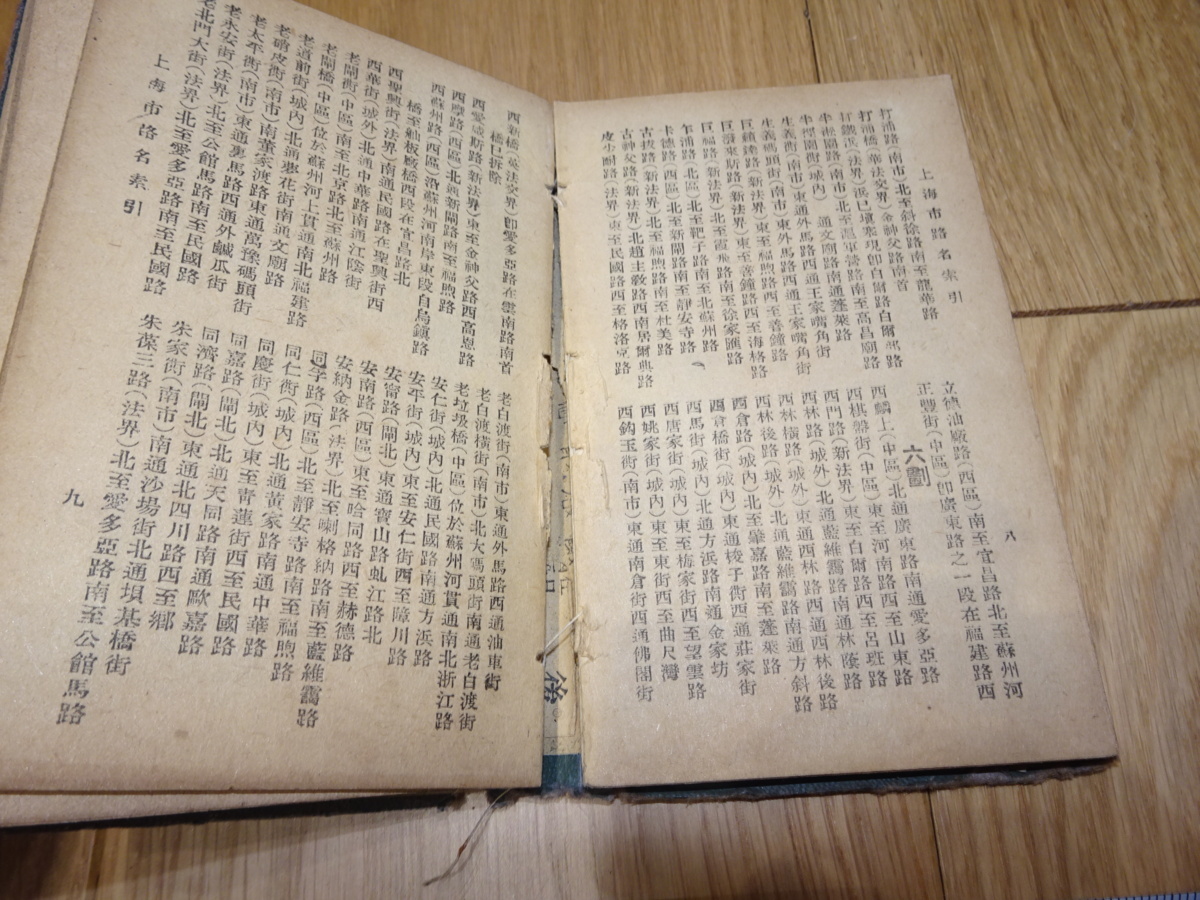 上海市路名索引
八
打浦路(南市)北至斜徐路南至龍華路
打浦橋(華法交界)金神父路南首
打鐵浜(法界)浜已塡塞現卽白爾路白爾部路
半淞園路(南市)北至混軍營路南至高昌廟路
半徑園街(城內) 通文廟路南通蓬萊路
生義街(南市)東通外馬路西通王家嘴角街
生義碼頭街(南市)東外馬路西通王家嘴角街
巨籟達路(新法界)東至福煦路西至善鐘路
巨潑來斯路(新法界)東至善鐘路西至海格路
巨福路(新法界)北至霞飛路南至徐家匯路
乍浦路(北區)北至靶子路南至北蘇州路
卡德路(西區)北至新閘路南至靜安寺路
古拔路(新法界)北至福煦路南至杜美路
古神父路(新法界)北趙主敎路西南居爾典路
皮少耐路(法界)東至民國路西至格洛克路
立德油廠路(西區)南至宜昌路北至蘇州河
正豐街(中區)卽廣東路之一段在福建路西
六劃
西麟上(中區)北通廣東路南通愛多亞路
西棋盤街(中區)東至河南路西至山東路
西門路(新法界)東至白爾路西至呂班路
西林路(城外)北通藍維靄路南通林蔭路
西林橫路(城外)東通西林路西通西林後路
西林後路(城外)北通藍維靄路南通方斜路
西倉路(城內)北至肇嘉路南至蓬萊路
西倉橋街(城內)東通梭子街西通莊家街
西馬街(城內)北通方浜路南通金家坊
西唐家街(城內)東至梅家街西至望雲路
西姚家街(城內)東至東街西至曲尺灣
西鈎玉街(南市)東通南倉街西通佛閣街
西新橋(英法交界)卽愛多亞路在雲南路南首
橋已拆除
西愛咸斯路(新法界)東至金神父路西高恩路
西摩路(西區)北至新閘路南至福煦路
西蘇州路(西區)沿蘇州河南岸東段自烏鎮路
橋至舢板廠橋西段在宜昌路北
西聖興街(法界)南通民國路在聖興街西
西華街(城外)北通中華路南通江陰街
老閘街(中區)南至北京路北至蘇州路
老閘橋(中區)位於蘇州河上貫通南北福建路
老道前街(城內)北通夢花街南通文廟路
老硝皮街(南市)南董家渡路東通萬豫碼頭街
老太平街(南市)東通裏馬路西通外鹹瓜街
老永安街(法界)北至公館馬路南至民國路
老北門大街(法界)北至愛多亞路南至民國路
老白渡街(南市)東通外馬路西通油車街
老白渡橫街(南市)北大碼頭街南通老白渡街
老垃圾橋(中區)位於蘇州河貫通南北浙江路
安仁街(城內)北通民國路南通方浜路
安平街(城內)東至安仁街西至障川路
安甯路(閘北)東通寶山路虬江路北
安南路(西區)東至哈同路西至赫德路
安納金路(法界)北至喇格納路南至藍維靄路
同孚路(西區)北至靜安寺路南至福煦路
同仁街(城內)北通黃家路南通中華路
同慶街(城內)東至靑蓮街西至民國路
同嘉路(閘北)北通天同路南通歐嘉路
同濟路(閘北)東通北四川路西至鄉
朱家街(南市)南通沙場街北通垻基橋街
朱葆三路(法界)北至愛多亞路南至公館馬路
上海市路名索引
九